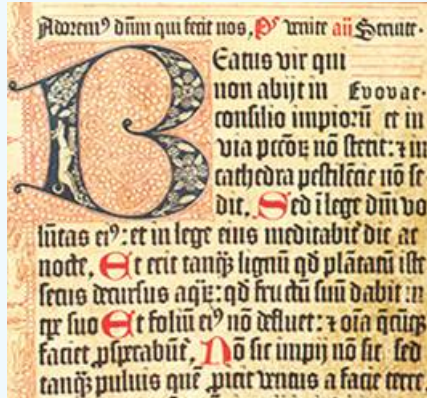 Adorem⁹ dn̄m qui fecit nos, Ps̄ venite an̄ Servite.
Beatus vir qui
non abijt in Evovae.
consilio impioru̅ et in
via pcc̄oꝝ nō stetit: ⁊ in
cathedra pestilēcie nō se⸗
dit, Sed ī lege dn̄i vo
lūtas ei⁹: et in lege eius meditabit̄ die ac
nocte, Et erit tanq̄ꝫ lignū qd̄ plātatū iste
secus decursus aqꝝ: qd̄ fructū suū dabit in
tp̄e suo Et foliū ei⁹ nō defluet: ⁊ oīa q̄cūqꝫ
faciet ꝓsperabūt̄, Nō sic impij nō sic, sed
tanq̄ꝫ pulvis quē ꝓicit ventus a facie terre,